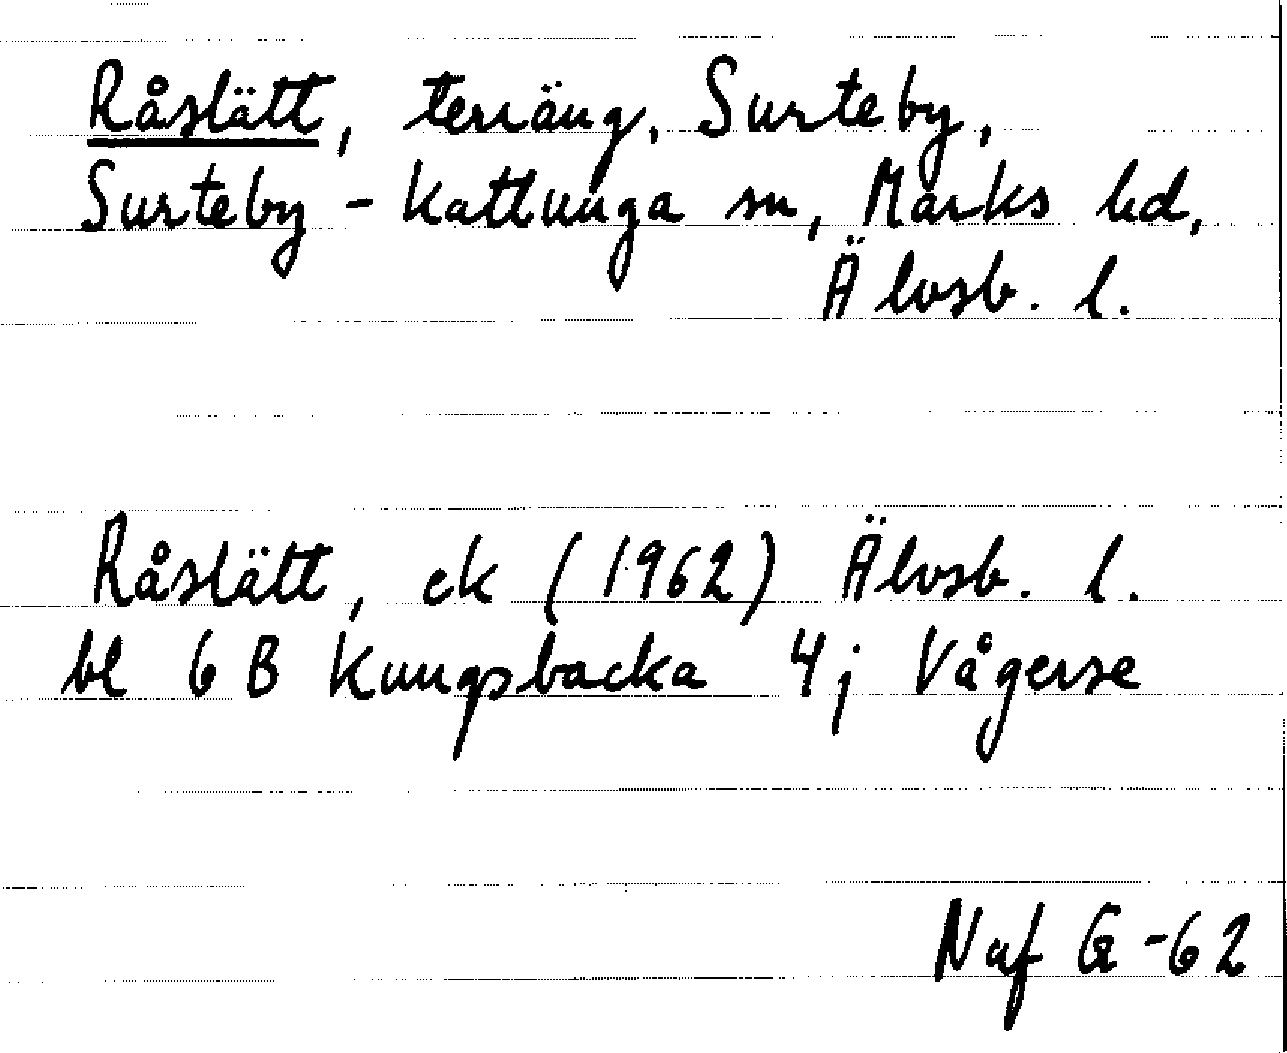 Råslätt, terräng, Surteby,
Surteby - Kattunga sn, Marks hd,
Älvsb. l.
Råslätt, ek (1962) Älvsb. l.
bl 6 B Kungsbacka 4j Vågerse
Naf G -62